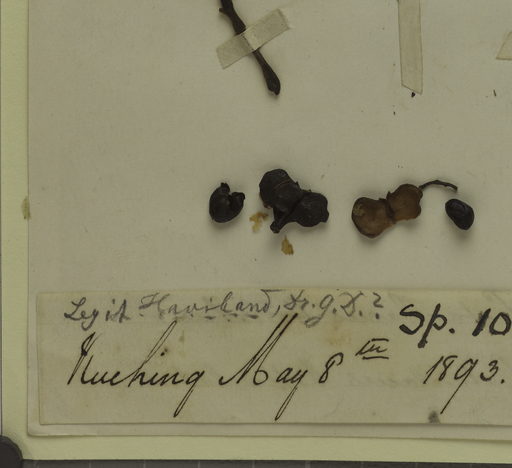 Legit Haviland, Dr. G. D.?
Sp. 10
Kuching May 8th 1893.